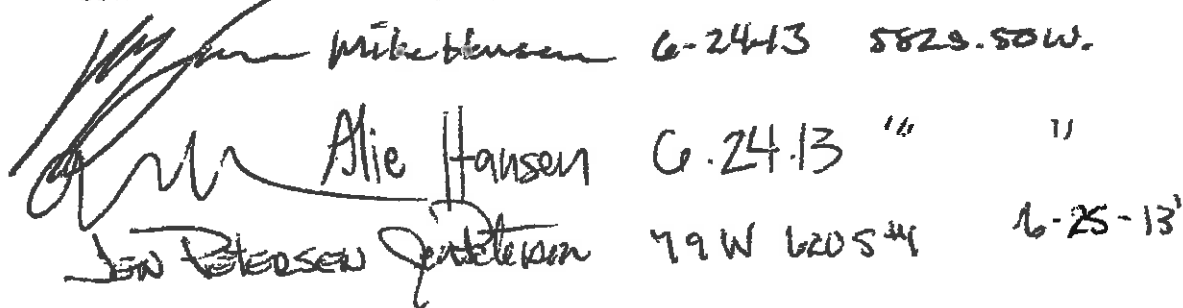 Mike Hansen 6-24-13 582 S. 50 W.
Alie Hansen 6.24.13 " "
JEN PETERSEN Jen Petersen 79 W 620 S #4 6-25-13